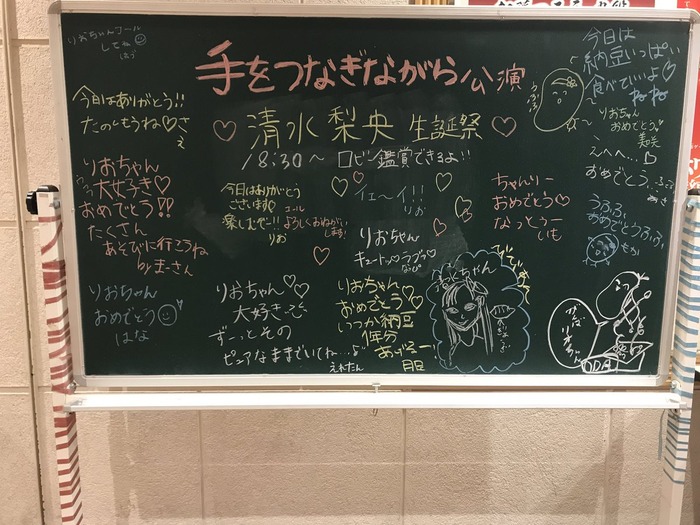 手をつなぎながら公演
清水梨央 生誕祭
18:30～ ロビー鑑賞できるよ!!
りおちゃんコール
してね
今日はありがとう!!
たのしもうね♡
りおちゃん
大好き♡
おめでとう!!
たくさん
あそびに行こうね
by まーさん
りおちゃん
おめでとう
はな
今日はありがとう
ございます♡
楽しむぞー!!
りお
コール
よろしくおねがい
します!
イェーイ!!
りお
りおちゃん
キュートッ♡ラブッ♡
なぴ
ちゃんりー
おめでとう♡
なっとぅー
いも
りおちゃん♡
大好き
ずーっとその
ピュアなままでいてね
えれたん
りおちゃん
おめでとう♡
いつか納豆
1年分
あげるー!
今日は
納豆いっぱい
食べていいよ♡
ねね
うふふ
りおちゃん
おめでとう
美咲
えへへ...
おめでとう
うふふ
おめでとううふふ
ちゃん
ODA